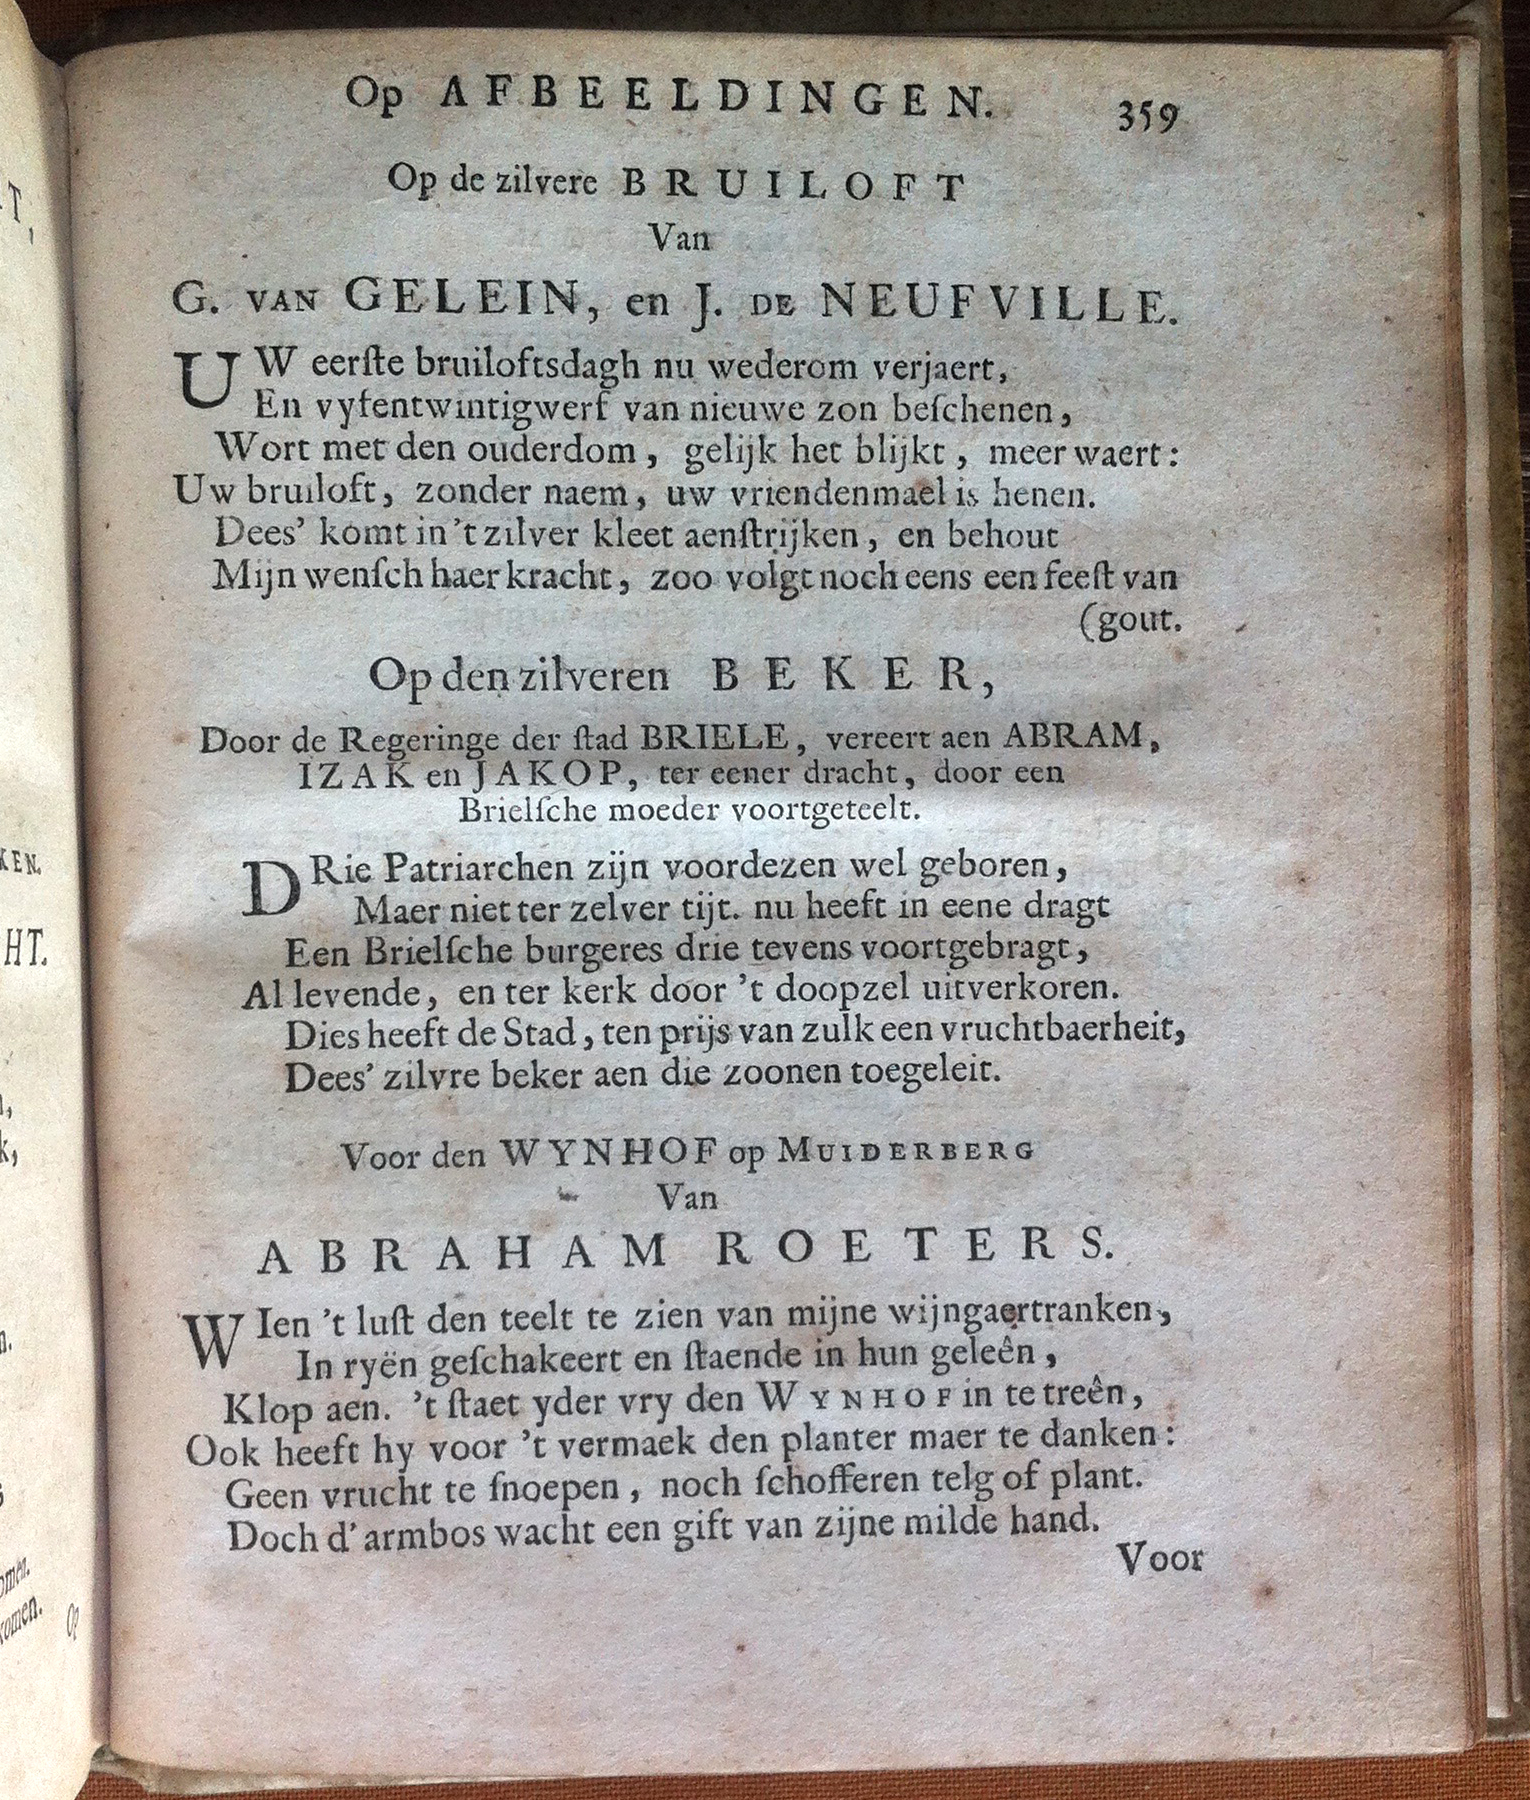 Op AFBEELDINGEN. 359
Op de zilvere BRUILOFT
Van
G. VAN GELEIN, en J. DE NEUFVILLE.
UW eerſte bruiloftsdagh nu wederom verjaert,
En vyfentwintigwerf van nieuwe zon beſchenen,
Wort met den ouderdom, gelijk het blijkt, meer waert:
Uw bruiloft, zonder naem, uw vriendenmael is henen.
Dees' komt in 't zilver kleet aenſtrijken, en behout
Mijn wenſch haer kracht, zoo volgt noch eens een feeſt van
(gout.
Op den zilveren BEKER,
Door de Regeringe der ſtad BRIELE, vereert aen ABRAM,
IZAK en JAKOP, ter eener dracht, door een
Brielſche moeder voortgeteelt.
DRie Patriarchen zijn voordezen wel geboren,
Maer niet ter zelver tijt. nu heeft in eene dragt
Een Brielſche burgeres drie tevens voortgebragt,
Al levende, en ter kerk door 't doopzel uitverkoren.
Dies heeft de Stad, ten prijs van zulk een vruchtbaerheit,
Dees' zilvre beker aen die zoonen toegeleit.
Voor den WYNHOF op MUIDERBERG
Van
ABRAHAM ROETERS.
WIen 't luſt den teelt te zien van mijne wijngaertranken,
In ryën geſchakeert en ſtaende in hun geleên,
Klop aen. 't ſtaet yder vry den WYNHOF in te treên,
Ook heeft hy voor 't vermaek den planter maer te danken:
Geen vrucht te ſnoepen, noch ſchofferen telg of plant.
Doch d'armbos wacht een gift van zijne milde hand.
Voor